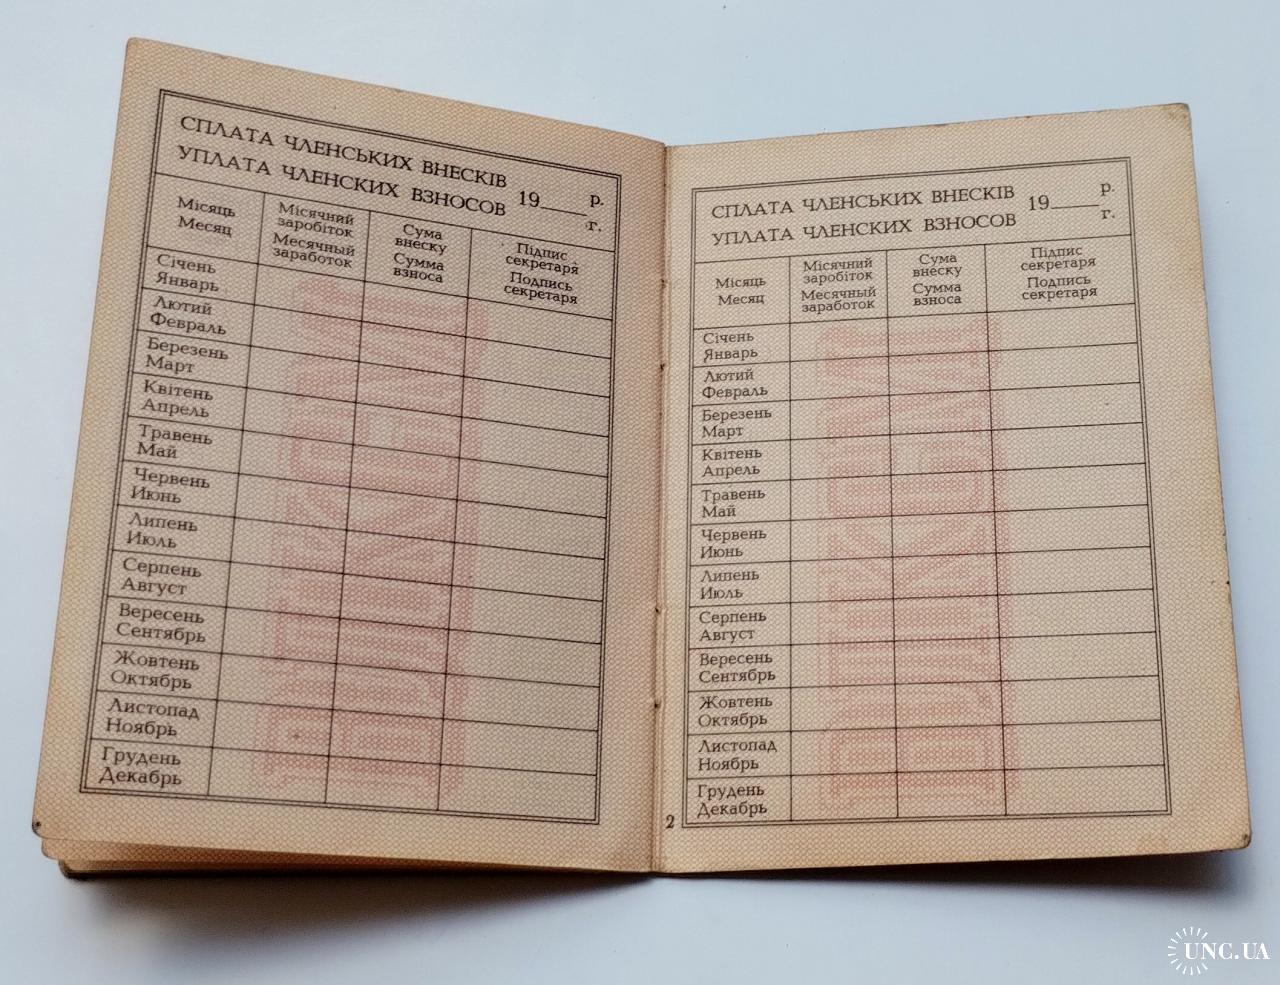 СПЛАТА ЧЛЕНСЬКИХ ВНЕСКІВ
УПЛАТА ЧЛЕНСКИХ ВЗНОСОВ
19____ р.
г.
Місяць
Месяц
Місячний
заробіток
Месячный
заработок
Сума
внеску
Сумма
взноса
Підпис
секретаря
Подпись
секретаря
Січень
Январь
Лютий
Февраль
Березень
Март
Квітень
Апрель
Травень
Май
Червень
Июнь
Липень
Июль
Серпень
Август
Вересень
Сентябрь
Жовтень
Октябрь
Листопад
Ноябрь
Грудень
Декабрь
СПЛАТА ЧЛЕНСЬКИХ ВНЕСКІВ
УПЛАТА ЧЛЕНСКИХ ВЗНОСОВ
19____ р.
г.
Місяць
Месяц
Місячний
заробіток
Месячный
заработок
Сума
внеску
Сумма
взноса
Підпис
секретаря
Подпись
секретаря
Січень
Январь
Лютий
Февраль
Березень
Март
Квітень
Апрель
Травень
Май
Червень
Июнь
Липень
Июль
Серпень
Август
Вересень
Сентябрь
Жовтень
Октябрь
Листопад
Ноябрь
Грудень
Декабрь
2
ВЛКСМ
ВЛКСМ
UNC.UA